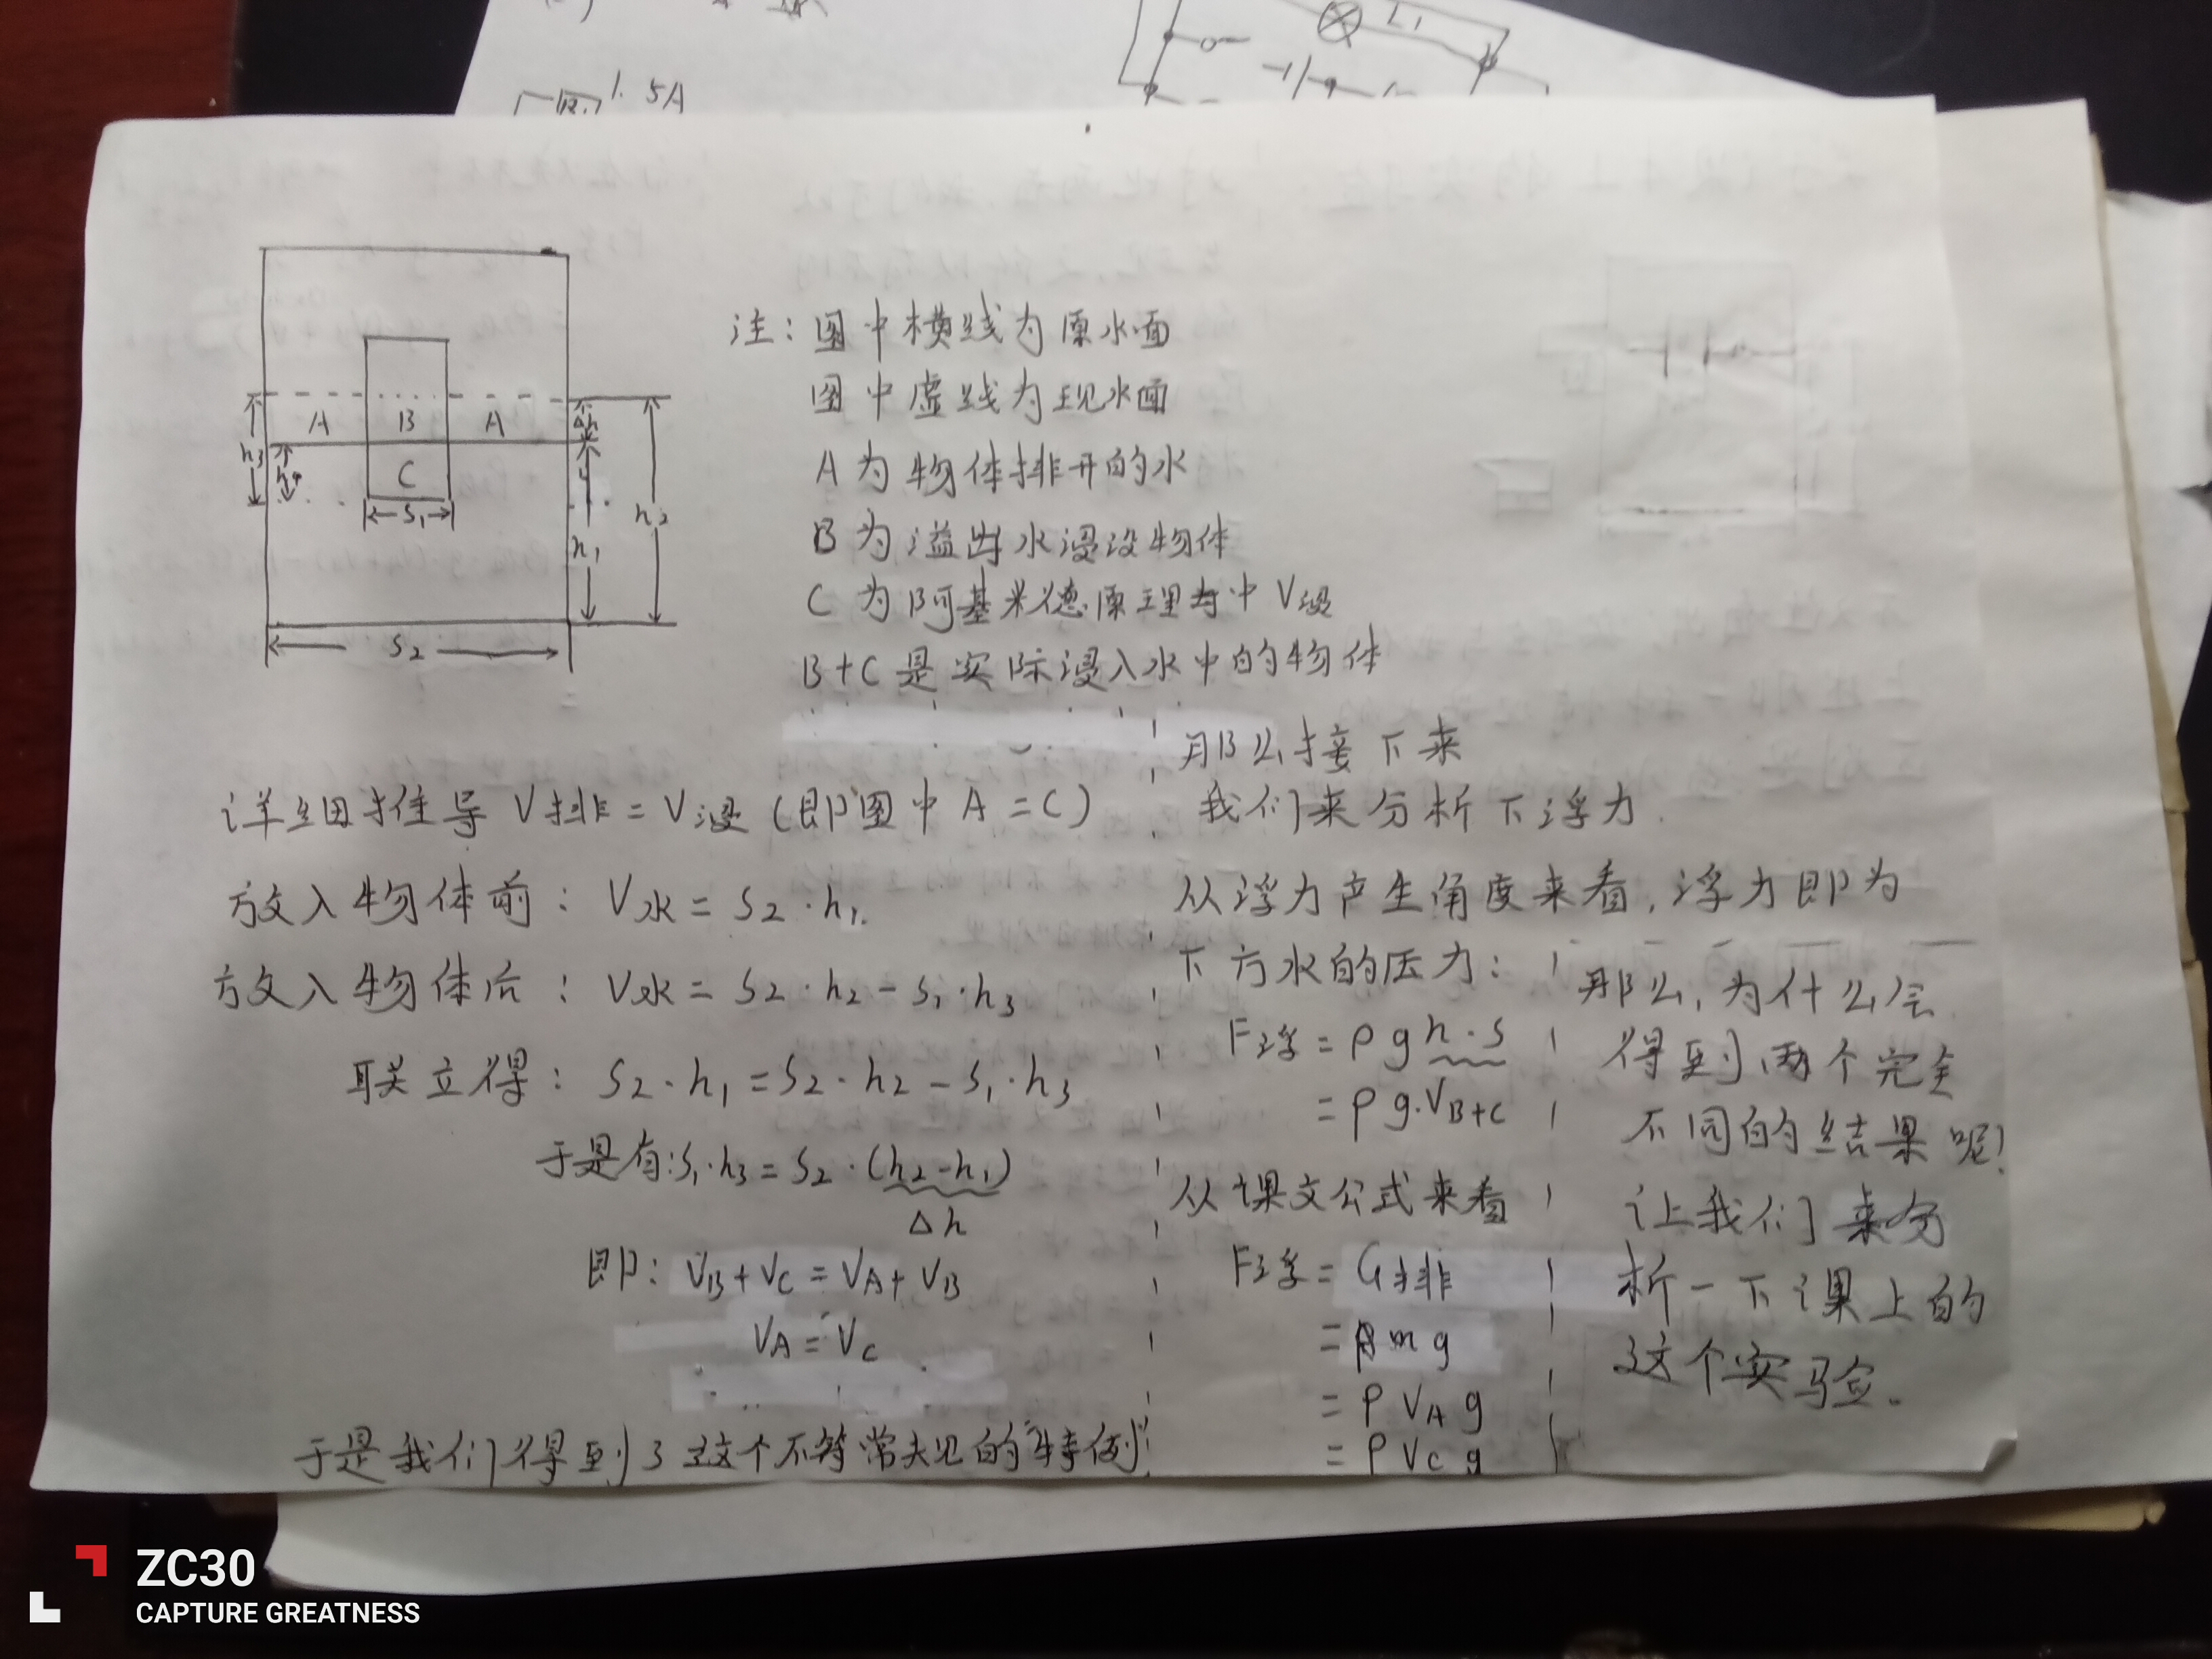 1.5A
L₁
注：图中横线为原水面
图中虚线为现水面
A为物体排开的水
B为溢出水浸没物体
C为阿基米德原理中V浸
B+C是实际浸入水中的物体
A B A
C
h₃ h₄ Δh h₁ h₂
S₁
S₂
详细推导 V排=V浸（即图中 A=C）
放入物体前：V水=S₂·h₁
放入物体后：V水=S₂·h₂-S₁·h₃
联立得：S₂·h₁=S₂·h₂-S₁·h₃
于是有:S₁·h₃=S₂·(h₂-h₁)
Δh
即：V_B+V_C=V_A+V_B
V_A=V_C
于是我们得到了这个不符常见的"特例"
那么接下来
我们来分析下浮力.
从浮力产生角度来看,浮力即为
下方水的压力：
F浮=ρgh·S
=ρg·V_B+C
从课文公式来看
F浮=G排
=mg
=ρV_A g
=ρV_C g
那么,为什么会
得到两个完全
不同的结果呢!
让我们来分
析一下课上的
这个实验.
ZC30
CAPTURE GREATNESS